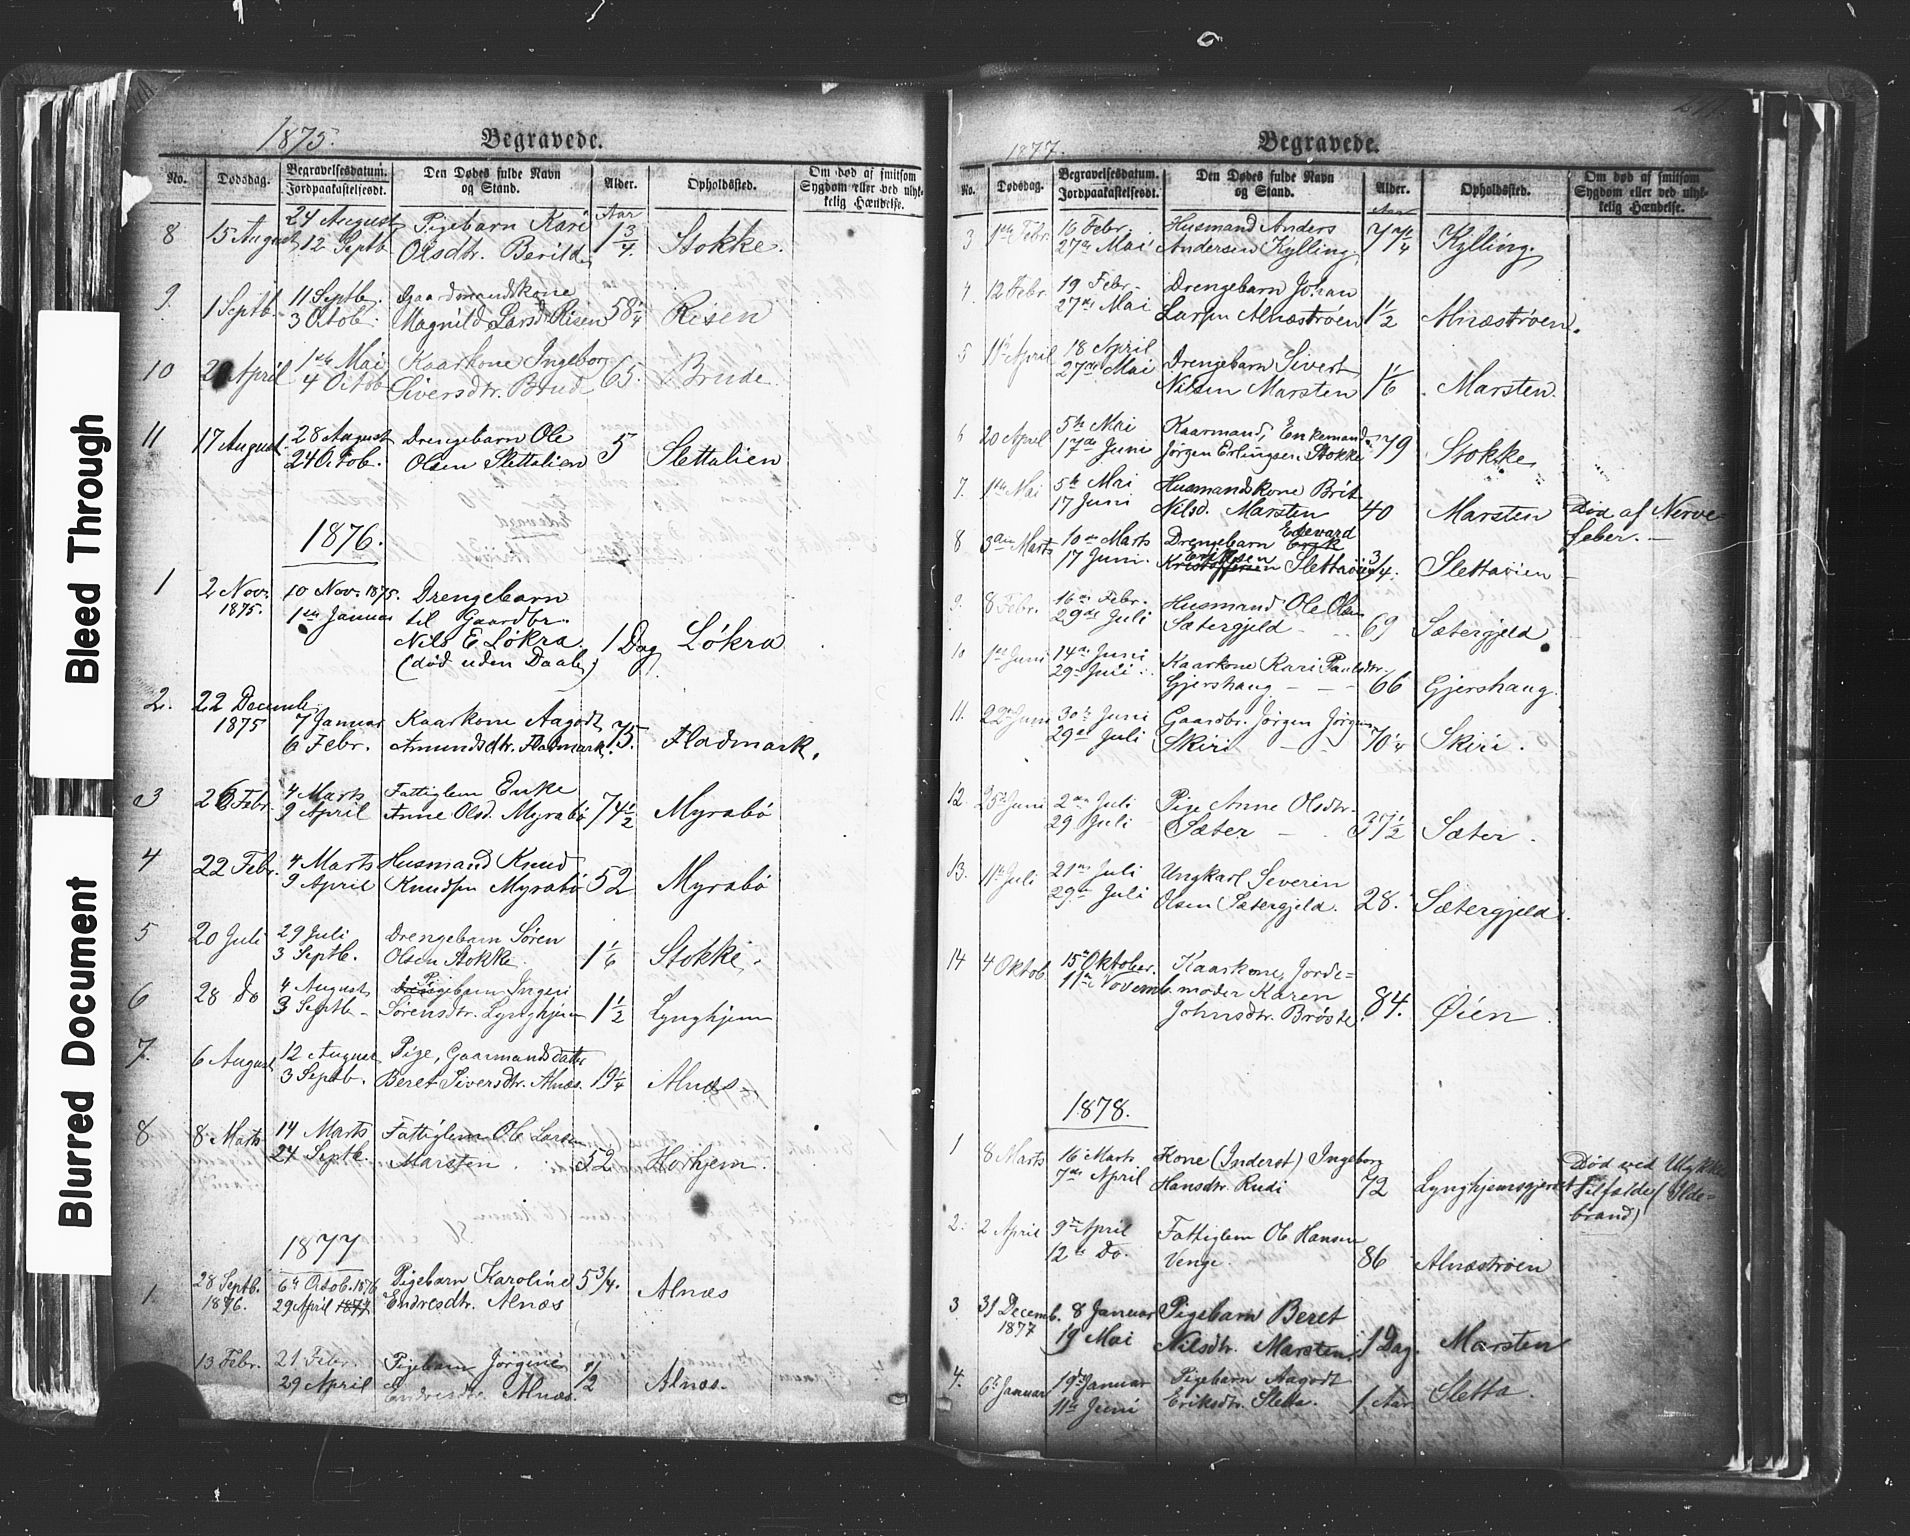 Bleed Through
Blurred Document
1875.
Begravede.
No.
Dødsdag.
Begravelsesdatum.
Jordpaakastelsesdt.
Den Dødes fulde Navn
og Stand.
Alder.
Opholdssted.
Om død af smitsom
Sygdom eller ved ulyk-
kelig Hændelse.
Aar
8 15 August 24 August Pigebarn Kari
12 Septb Olsdtr. Berild 1 3/4. Stokke.
9 1 Septb. 11 Septb. Gaardmandskone
3 Octob. Magnild Larsd Risen 58 1/4 Risen
10 April 1ste Mai Kaarkone Ingebor
4 Octob Siversdtr. Brude 65. Brude.
11 17 August. 28 August Drengebarn Ole
24 Octob. Olsen Slettalien 5 Slettalien
1876.
1 2 Nov. 10 Nov. 1875. Drengebarn
1875. 1ste Januar til Gaardbr.
Nils E Løkra 1 Dag Løkra
(død uden Daab.)
2. 22 Decembr.
1875 7 Januar Kaarkone Aagodt
6 Febr. Amundsdtr. Fladmark. 75. Fladmark.
3 26 Febr. 4 Marts Fattiglem Enke
9 April Anne Olsd. Myrabø 74 1/2 Myrabø
4 22 Febr. 4 Marts Husmand Knud
9 April Knudsen Myrabø 52 Myrabø
5 20 Juli 29 Juli Drengebarn Søren
3 Septb. Olsen Stokke. 1 1/6 Stokke.
6 28 Do 4 August Pigebarn Ingeri
3 Septb. Sørensdtr. Lynghjem 1 1/2 Lynghjem
7. 6 August 12 August Pige, Gaarmandsdatter
3 Septb. Beret Siversdtr. Alnæs. 19 1/4 Alnæs
8 8 Marts 14 Marts Fattiglem Ole Larsen
24 Septb. Marsten. 52 Horhjem.
1877
1. 28 Septb. 6te Octob. 1876 Pigebarn Karoline 5 3/4.
1876. 29 April 1877. Endresdtr. Alnæs Alnæs
13 Febr. 21 Febr. Pigebarn Jørgine
29 April Endresdtr. Alnæs. 1/2 Alnæs.
1877.
Begravede.
No.
Dødsdag.
Begravelsesdatum.
Jordpaakastelsesdt.
Den Dødes fulde Navn
og Stand.
Alder.
Opholdssted.
Om død af smitsom
Sygdom eller ved ulyk-
kelig Hændelse.
Aar
3 1ste Febr. 16 Febr. Husmand Anders
27de Mai Andersen Kylling 77 1/4 Kylling.
4 12 Febr. 19 Febr. Drengebarn Johan
27de Mai Larsen Alnæstrøen 1 1/2 Alnæstrøen.
5 11te April 18 April Drengebarn Sivert
27de Mai Nilsen Marsten 1 1/6 Marsten.
6 20 April 5te Mai Kaarmand, Enkemand
17de Juni Jørgen Erlingsen Stokke 79 Stokke
7. 1ste Mai 5te Mai Husmandskone Brit
17 Juni Nilsd. Marsten 40 Marsten Død af Nerve-
feber.
8 3die Marts 10de Marts Drengebarn Edevard
17 Juni. Eriksen Slettalien 3/4. Slettalien
9. 8 Febr. 16de Febr. Husmand Ole Olsen
29de Juli Sætergjeld 69 Sætergjeld
10 1ste Juni 14de Juni Kaarkone Kari Paulsdtr.
29de Juli. Gjershaug 66 Gjershaug.
11. 22de Juni 30te Juni Gaardbr. Jørgen Jørgens
29de Juli Skiri 70 1/4 Skiri.
12. 25de Juni 2den Juli Pige Anne Olsdtr.
29 Juli Sæter 37 1/2 Sæter.
13. 11te Juli 21de Juli Ungkarl Severin
29de Juli Olsen Sætergjeld. 28. Sætergjeld.
14 4 Oktob 15de Oktober. Kaarkone, Jorde-
11te Novemb. moder Karen
Johnsdtr. Brøste. 84. Øien
1878.
1 8 Marts 16 Marts Kone (Inderst) Ingeborg
7de April Hansdtr. Rudi 72 Lynghjemsgjerdet Død ved Ulykke-
tilfælde (Ilde-
brand)
2. 2 April 9de April Fattiglem Ole Hansen
12te Do. Venge. 86 Alnæstrøen
3 31 Decemb. 8 Januar Pigebarn Beret
1877 19 Mai Nilsdtr. Marsten. 1 Dag. Marsten
4. 6te Januar 19de Januar Pigebarn Aagodt
11te Juni Eriksdtr. Sletta. 1 Aar. Sletta.